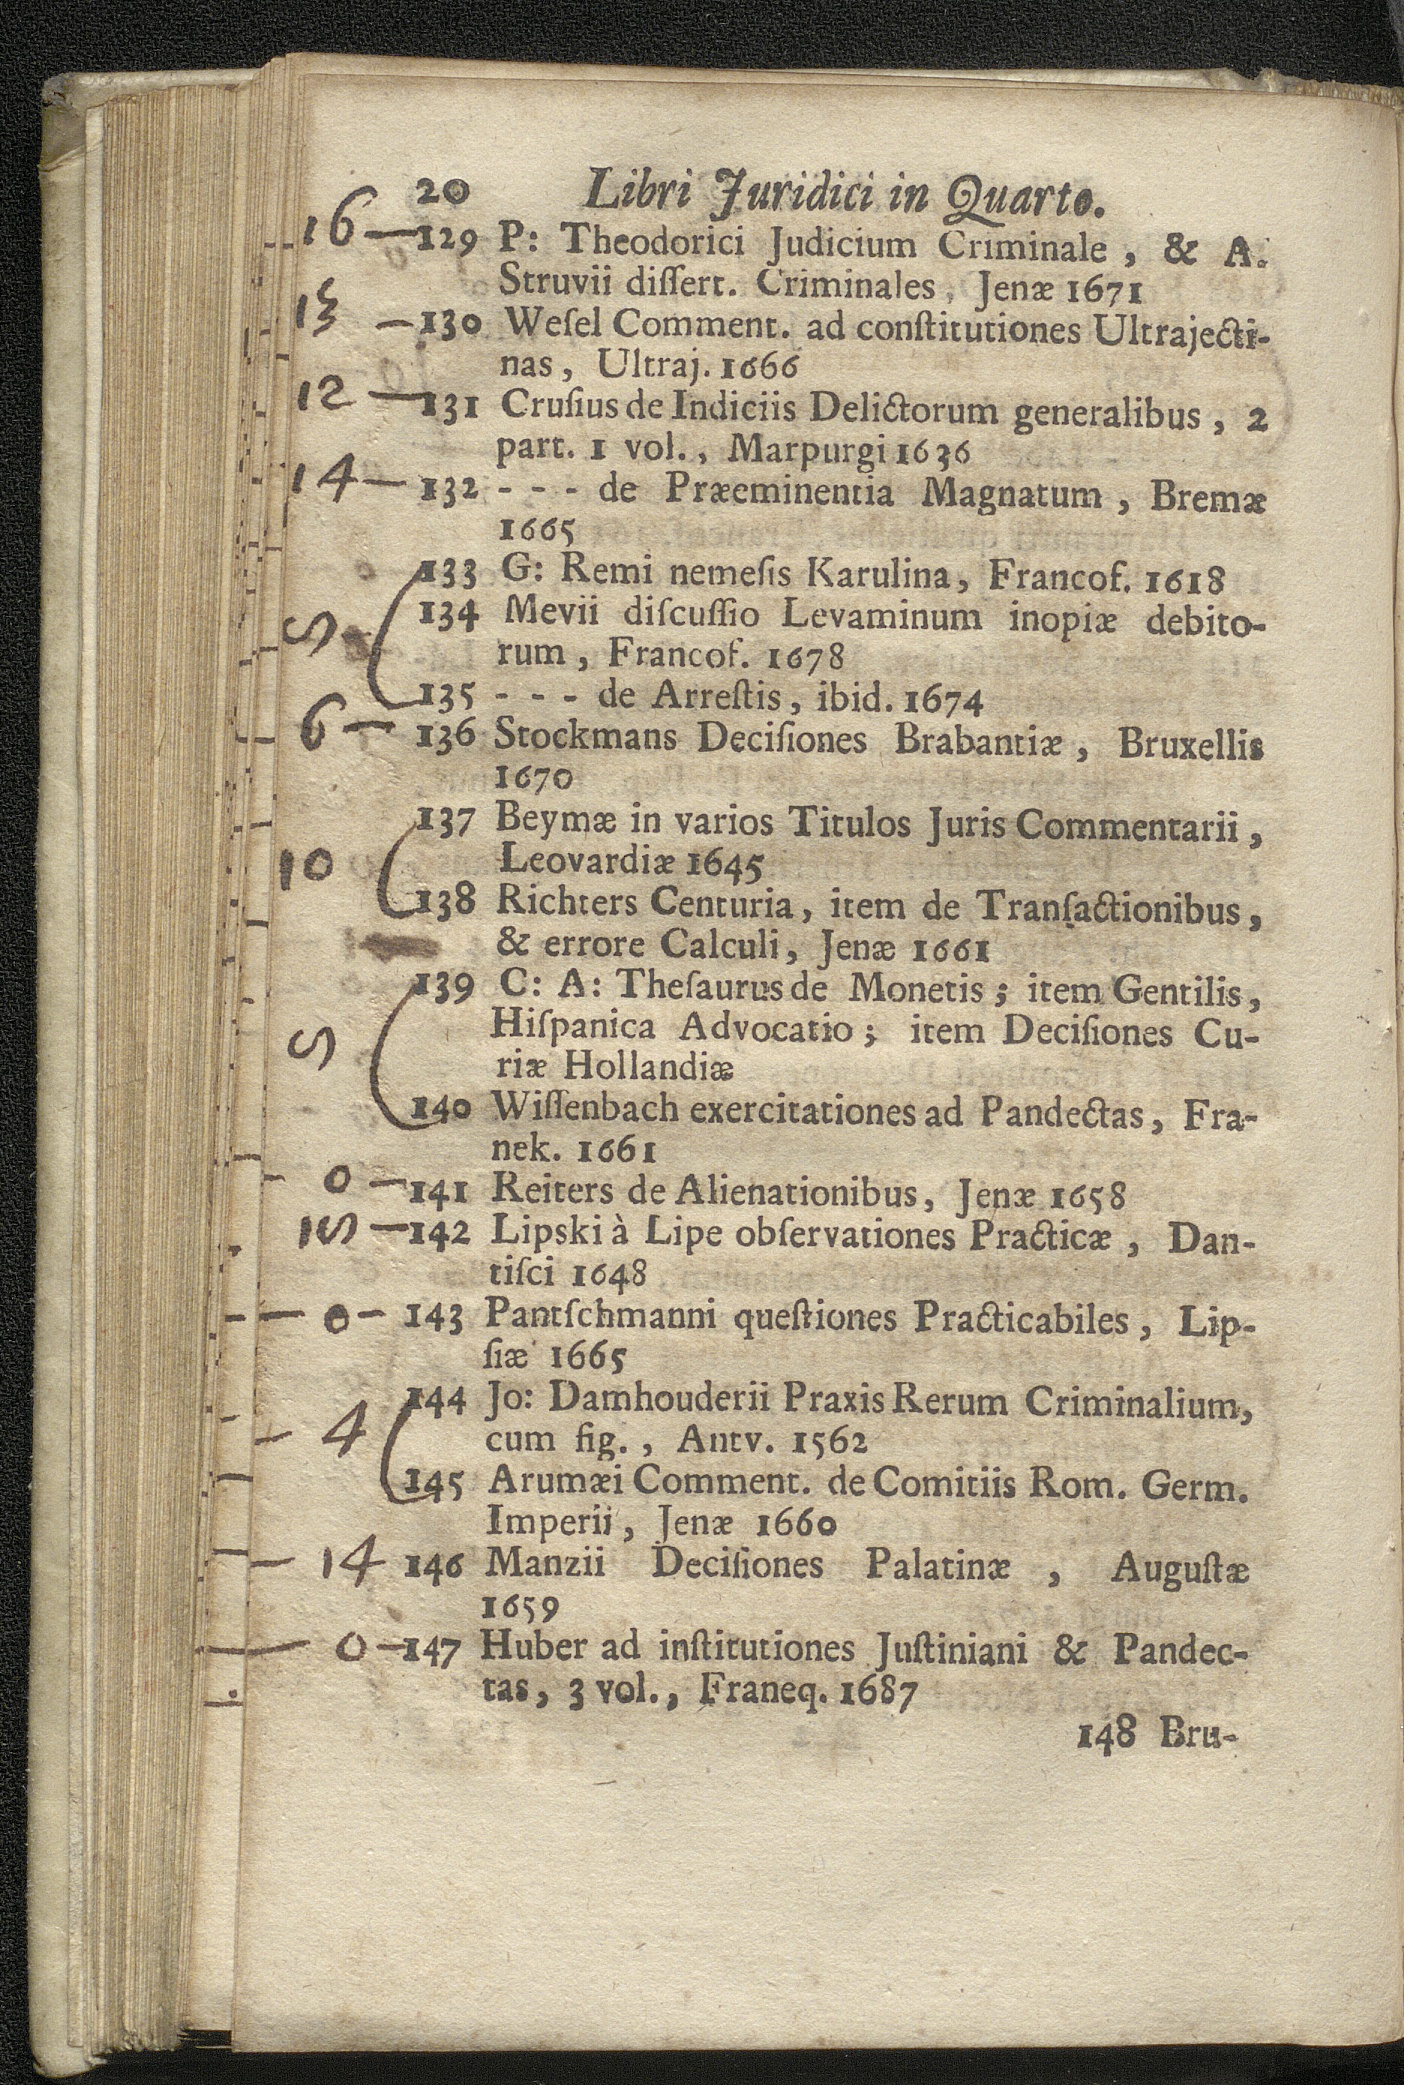 20 Libri Juridici in Quarto.
16 — 129 P: Theodorici Judicium Criminale, & A.
Struvii dissert. Criminales, Jenæ 1671
13 — 130 Weſel Comment. ad conſtitutiones Ultrajecti-
nas, Ultraj. 1666
12 — 131 Cruſius de Indiciis Delictorum generalibus, 2
part. 1 vol., Marpurgi 1636
14 — 132 - - - de Præeminentia Magnatum, Bremæ
1665
133 G: Remi nemeſis Karulina, Francof. 1618
134 Mevii diſcuſſio Levaminum inopiæ debito-
rum, Francof. 1678
135 - - - de Arreſtis, ibid. 1674
6 — 136 Stockmans Deciſiones Brabantiæ, Bruxellis
1670
137 Beymæ in varios Titulos Juris Commentarii,
10
Leovardiæ 1645
138 Richters Centuria, item de Tranſactionibus,
& errore Calculi, Jenæ 1661
139 C: A: Theſaurus de Monetis; item Gentilis,
Hiſpanica Advocatio; item Deciſiones Cu-
riæ Hollandiæ
140 Wiſſenbach exercitationes ad Pandectas, Fra-
nek. 1661
0 — 141 Reiters de Alienationibus, Jenæ 1658
— 142 Lipski à Lipe obſervationes Practicæ, Dan-
tiſci 1648
— 0 — 143 Pantſchmanni queſtiones Practicabiles, Lip-
ſiæ 1665
144 Jo: Damhouderii Praxis Rerum Criminalium,
4
cum fig., Antv. 1562
145 Arumæi Comment. de Comitiis Rom. Germ.
Imperii, Jenæ 1660
— 14 146 Manzii Deciſiones Palatinæ, Auguſtæ
1659
— 0 — 147 Huber ad inſtitutiones Juſtiniani & Pandec-
tas, 3 vol., Franeq. 1687
148 Bru-